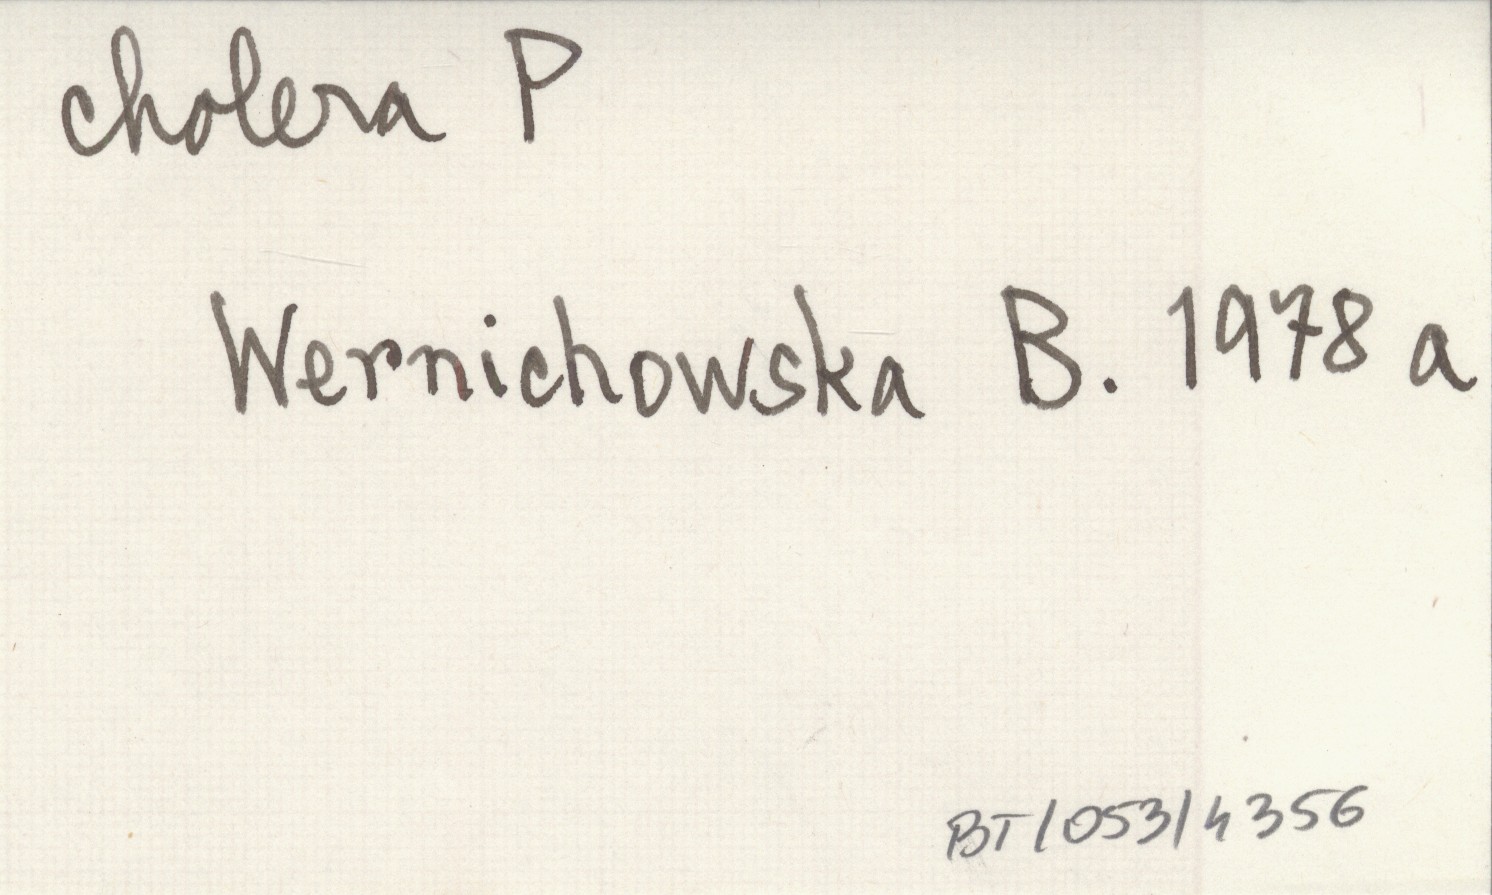 cholera P
Wernichowska B. 1978 a
BT/053/4356